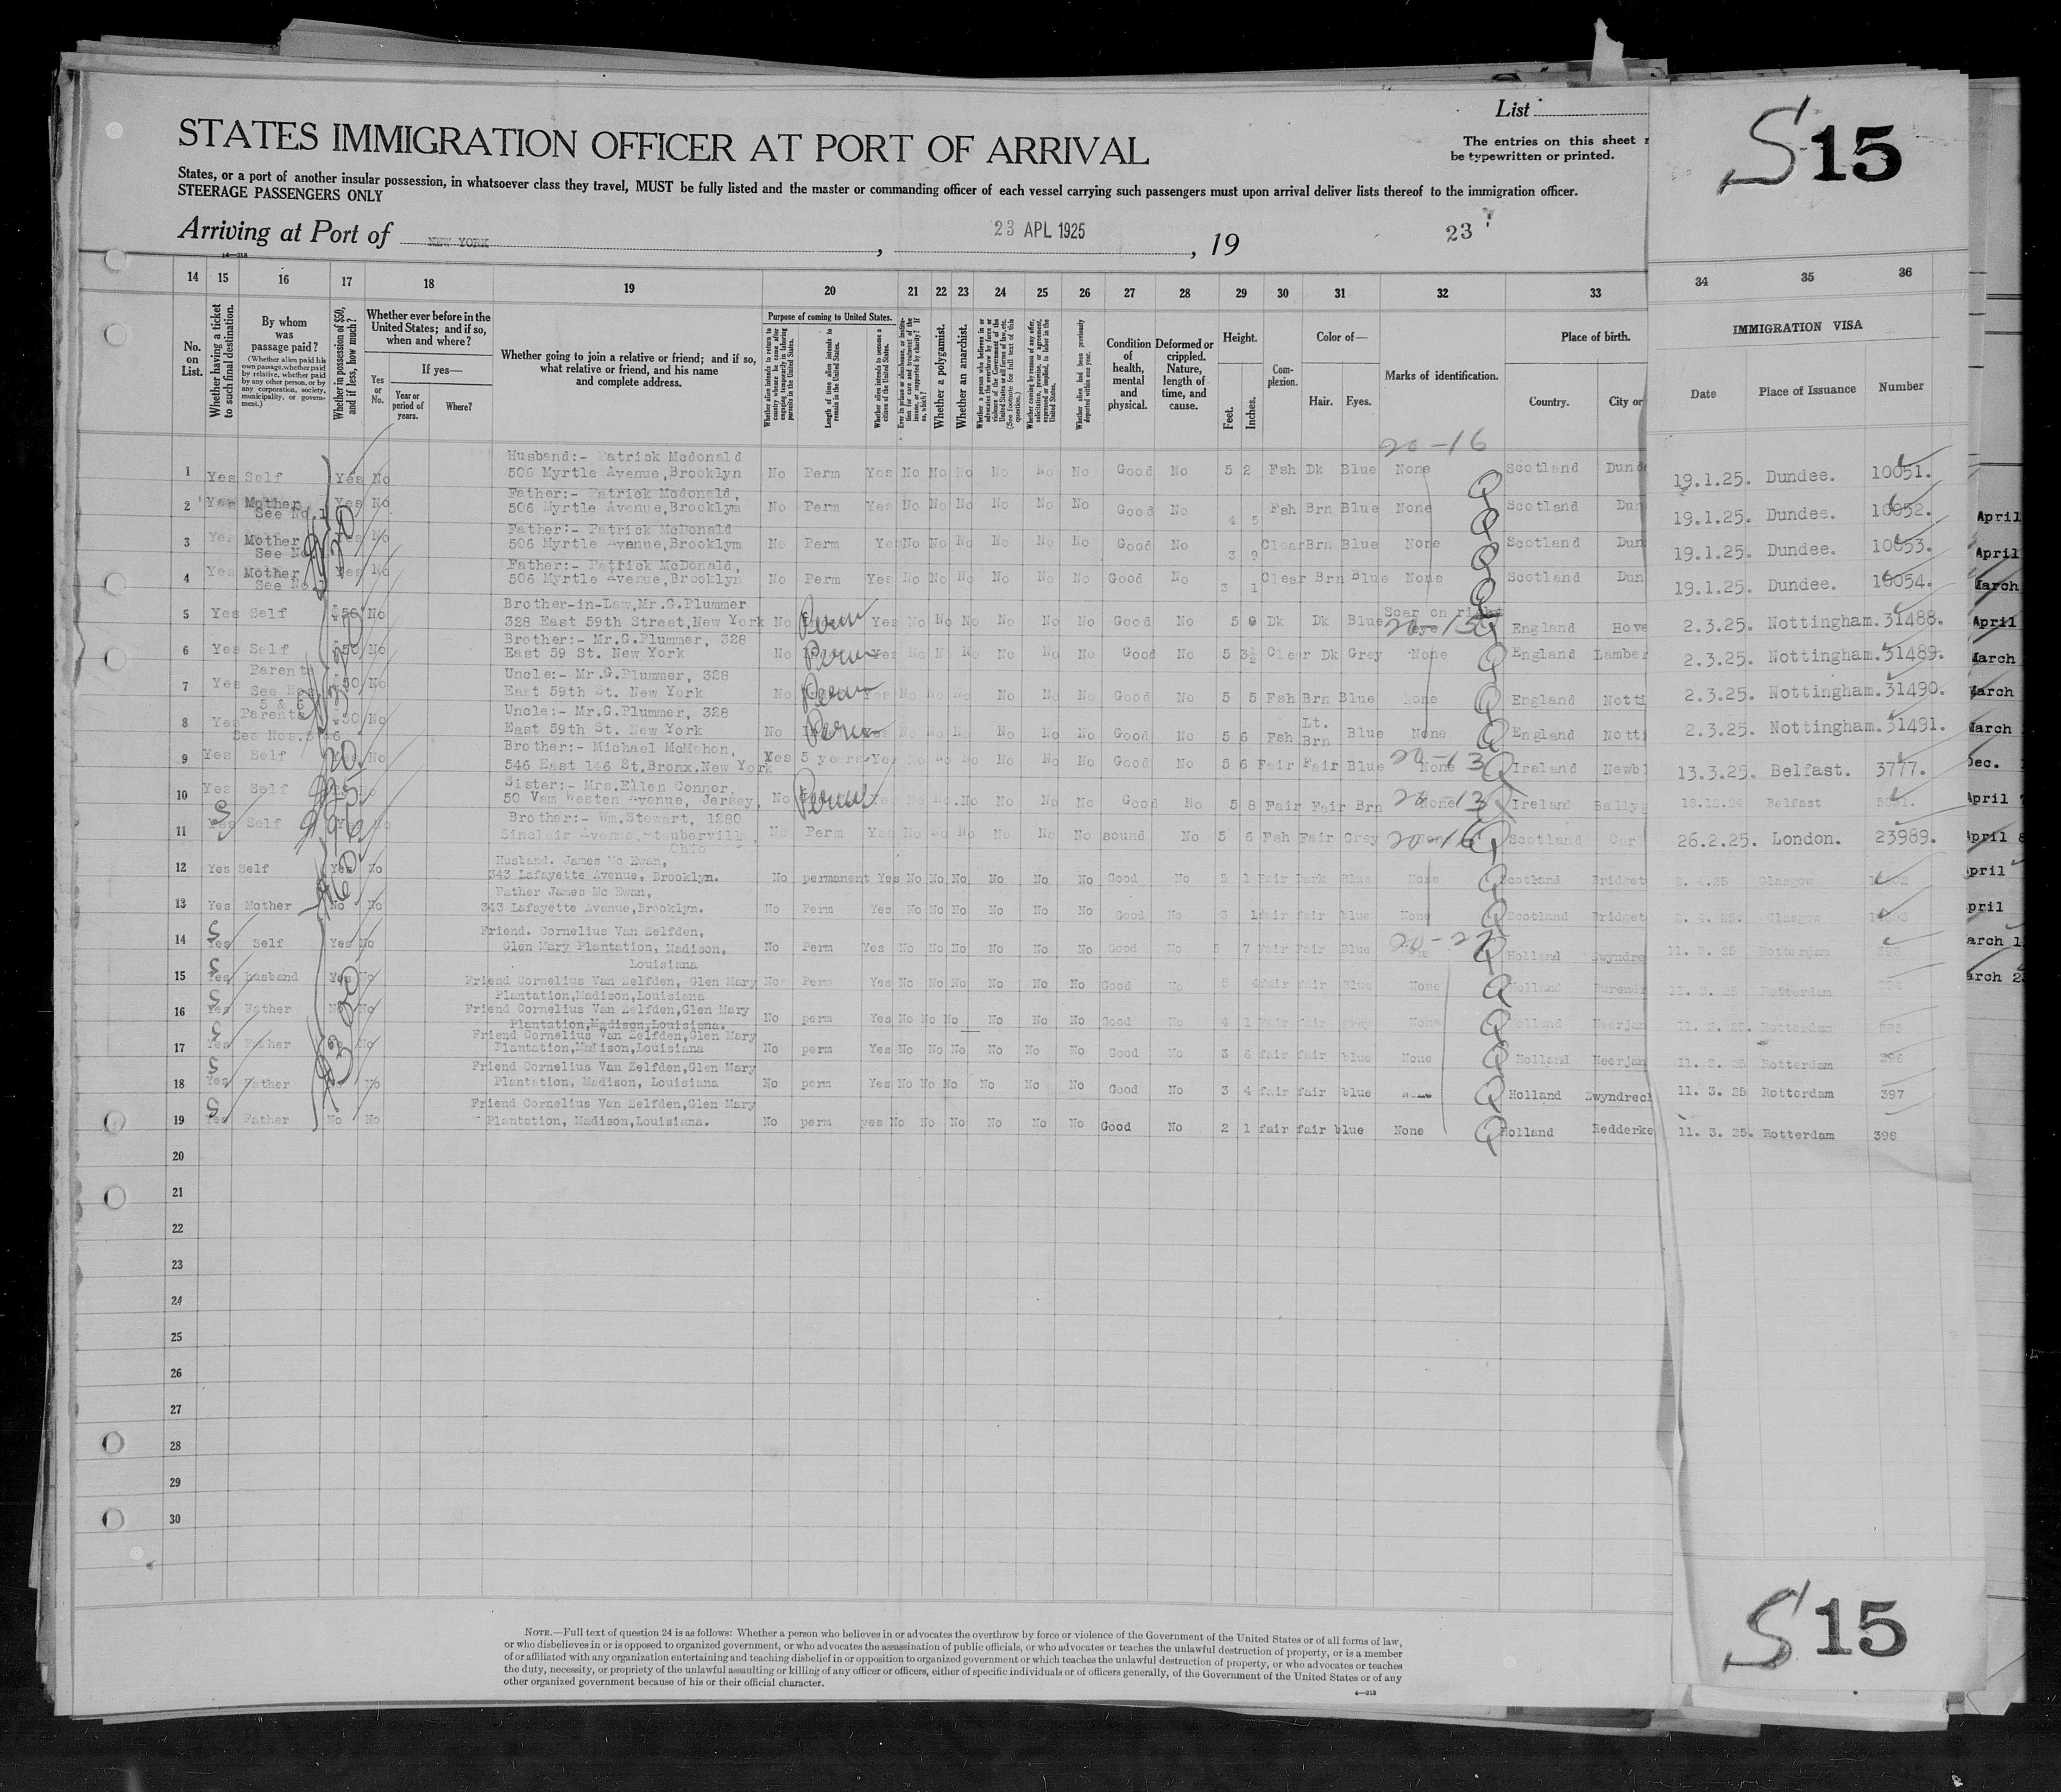 List
STATES IMMIGRATION OFFICER AT PORT OF ARRIVAL
The entries on this sheet
be typewritten or printed.
S 15
States, or a port of another insular possession, in whatsoever class they travel, MUST be fully listed and the master or commanding officer of each vessel carrying such passengers must upon arrival deliver lists thereof to the immigration officer.
STEERAGE PASSENGERS ONLY
Arriving at Port of NEW YORK, 23 APL 1925, 19 23
14 15 16 17 18 19 20 21 22 23 24 25 26 27 28 29 30 31 32 33 34 35 36
No. on List.
Whether having a ticket to such final destination.
By whom was passage paid?
(Whether alien paid his own passage, whether paid by relative, whether paid by any other person, or by any corporation, society, municipality, or government.)
Whether in possession of $50, and if less, how much?
Whether ever before in the United States; and if so, when and where?
Yes or No.
If yes—
Year or period of years.
Where?
Whether going to join a relative or friend; and if so, what relative or friend, and his name and complete address.
Purpose of coming to United States.
Whether alien intends to return to country whence he came after engaging temporarily in laboring pursuits in the United States.
Length of time alien intends to remain in the United States.
Whether alien intends to become a citizen of the United States.
Whether a polygamist.
Whether an anarchist.
Whether coming by reason of any offer, solicitation, promise, or agreement, expressed or implied, to labor in the United States.
Whether alien had been previously deported within one year.
Condition of health, mental and physical.
Deformed or crippled. Nature, length of time, and cause.
Height.
Feet.
Inches.
Complexion.
Color of—
Hair.
Eyes.
Marks of identification.
Place of birth.
Country.
City or
IMMIGRATION VISA
Date
Place of Issuance
Number
20-16
1 Yes Self Yes No Husband:- Patrick Mcdonald 506 Myrtle Avenue,Brooklyn No Perm Yes No No No No No No Good No 5 2 Fsh Dk Blue None Scotland Dund 19.1.25. Dundee. 10051.
2 Yes Mother See No.1 Yes No Father:- Patrick Mcdonald, 506 Myrtle Avenue,Brooklym No Perm Yes No No No No No No Good No 4 5 Fsh Brn Blue None Scotland Dun 19.1.25. Dundee. 10052.
3 Yes Mother See No Yes No Father:- Patrick McDonald 506 Myrtle Avenue,Brooklym No Perm Yes No No No No No No Good No 3 9 Clear Brn Blue None Scotland Dun 19.1.25. Dundee. 10053.
4 Yes Mother See No.1 Yes No Father:- Patrick McDonald, 506 Myrtle Avenue,Brooklym No Perm Yes No No No No No No Good No 3 1 Clear Brn Blue None Scotland Dun 19.1.25. Dundee. 10054.
5 Yes Self $50 No Brother-in-Law,Mr.G.Plummer 328 East 59th Street,New York No Perm Yes No No No No No No Good No 5 9 Dk Dk Blue Scar on right eye 20-13 England Hove 2.3.25. Nottingham. 31488.
6 Yes Self $50 No Brother:- Mr.G.Plummer, 328 East 59 St. New York No Perm Yes No N No No No No Good No 5 3½ Clear Dk Grey None England Lamber 2.3.25. Nottingham. 31489.
7 Yes Parents See Nos. 5 & 6 $50 No Uncle:- Mr.G.Plummer, 328 East 59th St. New York No Perm Yes No No No No No No Good No 5 5 Fsh Brn Blue None England Notti 2.3.25. Nottingham. 31490.
8 Yes Parents See Nos.5 &6 $50 No Uncle:- Mr.G.Plummer, 328 East 59th St. New York No Perm Yes No No No No No No Good No 5 6 Fsh Lt. Brn Blue None England Notti 2.3.25. Nottingham. 31491.
9 Yes Self Yes No Brother:- Michael McMahon, 546 East 146 St.Bronx.New York Yes 5 years Yes No No No No No No Good No 5 6 Fair Fair Blue None 20-13 Ireland Newbl 13.3.25. Belfast. 3777.
10 Yes Self No Sister:- Mrs.Ellen Connor, 50 Vam Westen Avenue, Jersey, No Perm Yes No No No No No No Good No 5 8 Fair Fair Brn None 20-13 Ireland Ballyg 18.12.24 Belfast
11 Yes Self Yes No Brother:- Wm.Stewart, 1280 Sinclair Avenue,Steuberville, Ohio No Perm Yes No No No No No No sound No 5 6 Fsh Fair Grey None 20-16 Scotland Car 26.2.25. London. 23989.
12 Yes Self Yes No Husband. James Mc Ewan, 343 Lafayette Avenue, Brooklyn. No permanent Yes No No No No No No Good No 5 1 Fair Dark Blue None Scotland Bridget 2. 4.25 Glasgow
13 Yes Mother No No Father James Mc Ewan, 343 Lafayette Avenue,Brooklyn. No Perm Yes No No No No No No Good No 3 1 fair fair blue None Scotland Bridget 2. 4. 25. Glasgow
14 Yes Self Yes No Friend. Cornelius Van Zelfden, Glen Mary Plantation, Madison, Louisiana No Perm Yes No No No No No No Good No 5 7 Fair Fair Blue Holland Zwyndre 11. 3. 25 Rotterdam 393
15 Yes husband Yes No Friend Cornelius Van Zelfden, Glen Mary Plantation,Madison,Louisiana No Perm Yes No No No No No No Good No 5 4 fair fair Blue None Holland 11. 3. 25 Rotterdam 394
16 Yes Father No No Friend Cornelius Van Zelfden,Glen Mary Plantation,Madison,Louisiana. No perm Yes No No No No No No Good No 4 1 None Holland Heerjan 11. 3. 25. Rotterdam 395
17 Yes Father No Friend Cornelius Van Zelfden,Glen Mary Plantation,Madison,Louisiana No perm Yes No No No No No No Good No 3 6 fair fair blue None Holland Heerjan 11. 3. 25 Rotterdam 396
18 Yes Father No Friend Cornelius Van Zelfden,Glen Mary Plantation, Madison, Louisiana No perm Yes No No No No No No Good No 3 4 fair fair blue None Holland Zwyndrech 11. 3. 25 Rotterdam 397
19 Yes Father No No Friend Cornelius Van Zelfden,Glen Mary Plantation, Madison,Louisiana. No perm yes No No No No No No Good No 2 1 fair fair blue None Holland Redderke 11. 3. 25. Rotterdam 398
20
21
22
23
24
25
26
27
28
29
30
April
April
March
April
March
March
March
Dec.
April
April
April
April
arch
arch
NOTE.—Full text of question 24 is as follows: Whether a person who believes in or advocates the overthrow by force or violence of the Government of the United States or of all forms of law,
or who disbelieves in or is opposed to organized government, or who advocates the assassination of public officials, or who advocates or teaches the unlawful destruction of property, or is a member
of or affiliated with any organization entertaining and teaching disbelief in or opposition to organized government or which teaches the unlawful destruction of property, or who advocates or teaches
the duty, necessity, or propriety of the unlawful assaulting or killing of any officer or officers, either of specific individuals or of officers generally, of the Government of the United States or of any
other organized government because of his or their official character.
S 15